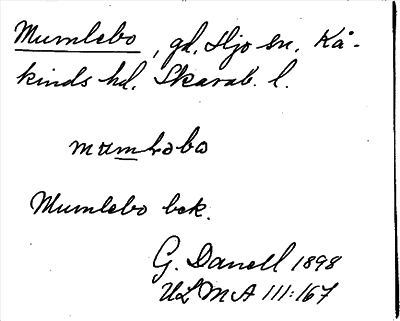 Mumlebo, gd. Hjo sn. Kå-
kinds hd. Skarab. l.
mumləbo
Mumlebo bek.
G. Danell 1898
ULMA III:167